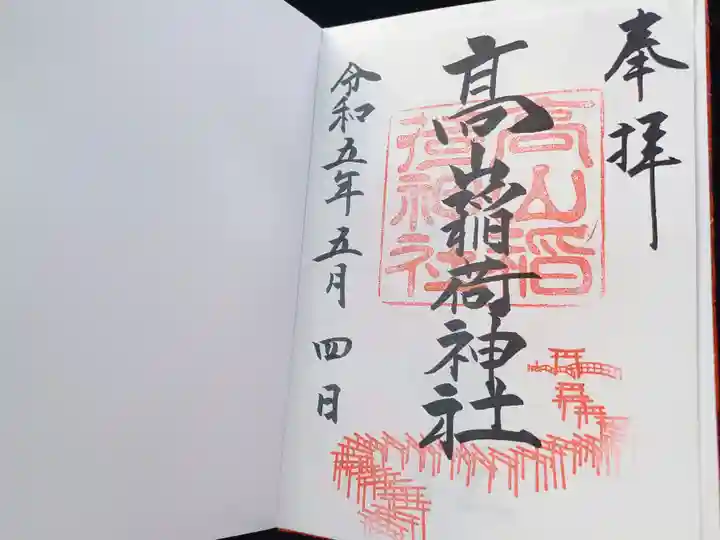 奉拝
髙山稲荷神社
高山稲荷神社
令和五年五月四日